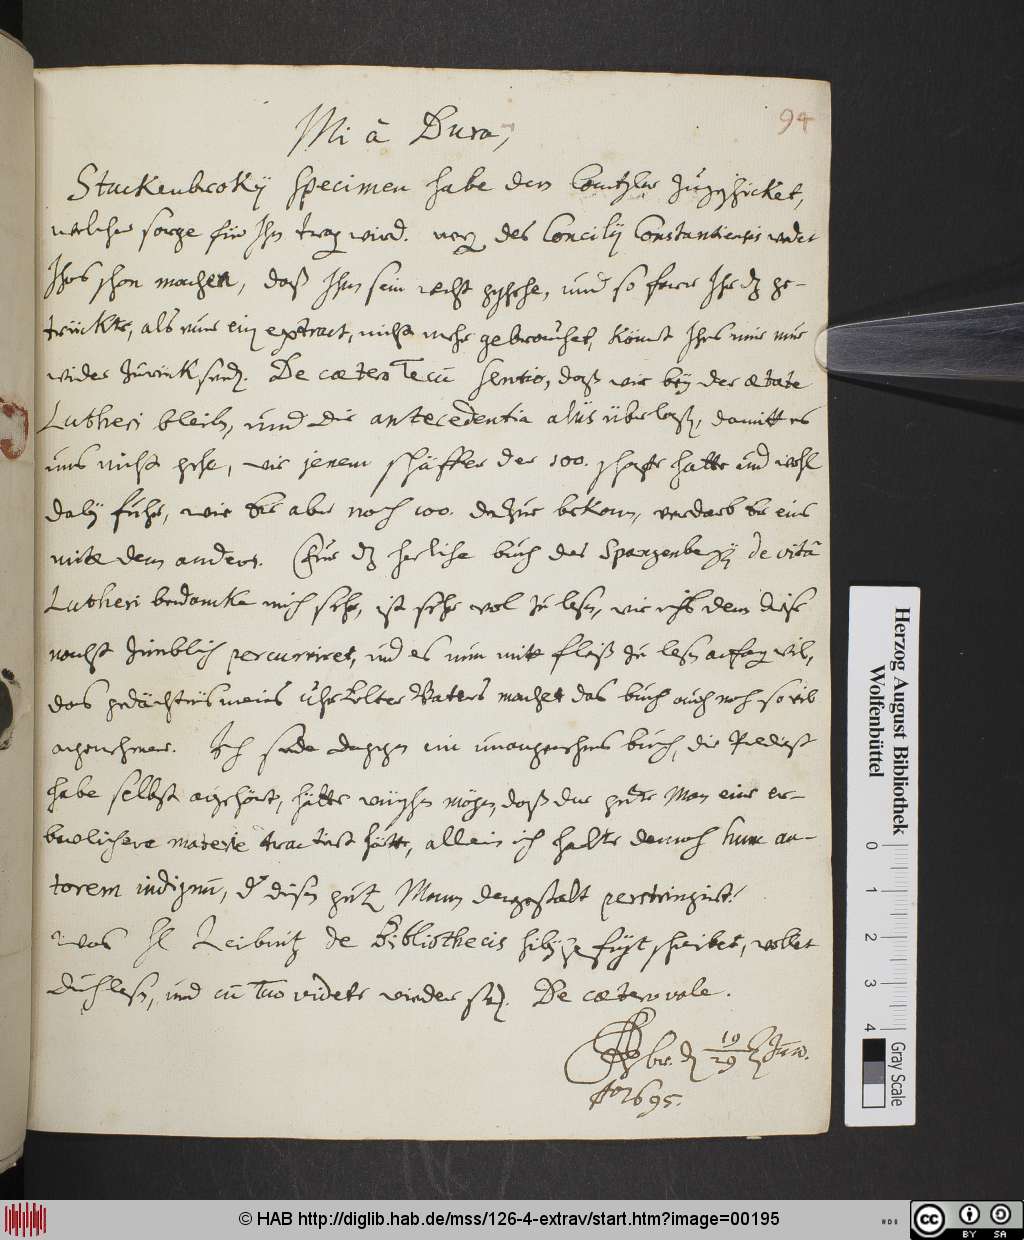 94
Mi à Dura,
Stuckenbrokÿ specimen habe dem Cantzler zugeschicket,
welcher sorge für Ihn tragen wird. wegen des Concilÿ Constantiensis werdet
Ihrs schon machen, daß Ihm sein recht geschehe, und so ferne Ihr ge-
truckte, als nur ein extract, nicht mehr gebrauchet, könnt Ihrs mir nur
wider zurück senden. De caetero Tecū sentio, daß wir beÿ der aetate
Lutheri bleiben, und die antecedentia aliis überlaßen, damitt es
uns nicht gehe, wie jenem schäffer der 100. schafe hatte und wohl
dabeÿ fuhr, wie er aber noch 100. dazu bekam, verdarb er eins
mitt dem andern. Für das herliche buch des Spangenbergÿ de vitâ
Lutheri bedancke mich sehr, ist sehr wol zu lesen, wie ichs denn diese
nacht zimblich percurriret, und es nun mitt fleiß zu lesen anfangen wil,
das gedächtnis meins UhrElter Vaters machet das buch auch noch so viel
angenehmer. Ich sende dagegen ein unangenehmes buch, die Predigt
habe selbst angehört, hätte wüschen mögen, daß der gute Man eine er-
bawlichere materie tractirt hätte, allein ich halte dennoch hunc au-
torem indignū, der diesen guten Mann dergestalt perstringirt.
Was H Leibnitz de Bibliothecis hibeÿ gefügt schreibet, wollet
durchlesen, und cū Tuo videtr wieder senden. De caetero vale.
br. d 19/29 Jun.
Ao 1695.
Herzog August Bibliothek
Wolfenbüttel
0 1 2 3 4
Gray Scale
© HAB http://diglib.hab.de/mss/126-4-extrav/start.htm?image=00195
cc BY SA